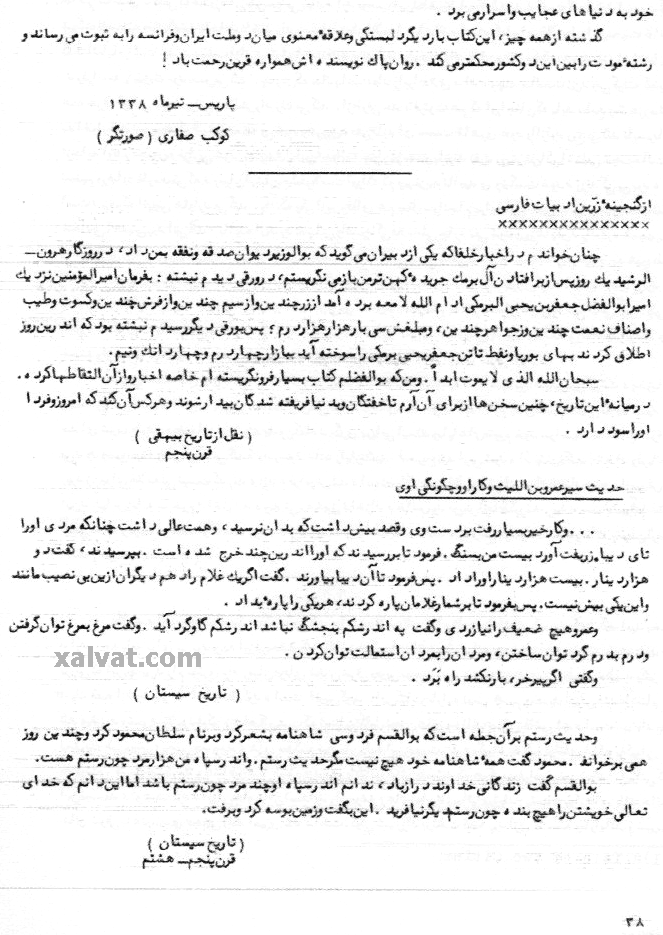 خود به دنیاهای عجایب واسرارمی برد .
گذشته ازهمه چیز، این کتاب باردیگردلبستگی وعلاقهٔ معنوی میان دوملت ایران وفرانسه رابه ثبوت می رساند و
رشتهٔ مودت رابین این دوکشورمحکمترمی کند . روان پاك نویسنده اش همواره قرین رحمت باد !
پاریس ـ تیرماه ۱۳۳۸
کوکب صفاری ( صورتگر )
ازگنجینهٔ زرین ادبیات فارسی
×××××××××××××××
چنان خواندم دراخبارخلفاکه یکی ازدبیران می گویدکه بوالوزیردیوان صدقه ونفقه بمن داد، درروزگارهرون ـ
الرشیدیك روزپس ازبرافتادن آل برمك جریدهٔ کهن ترمن بازمی نگریستم، درورقی دیدم نبشته : بفرمان امیرالمؤمنین نزدیك
امیرابوالفضل جعفربن یحیی البرمکی ادام الله لامعه برده آمد اززرچندین وازسیم چندین وازفرش چندین وکسوت وطیب
واصناف نعمت چندین وزجواهرچندین، ومبلغش سی بارهزارهزاردرم ؛ پس بورقی دیگررسیدم نبشته بودکه اندرین روز
اطلاق کردند بهای بوریاونفط تاتن جعفریحیی برمکی راسوخته آید ببازارچهاردرم وچهاردانك ونیم.
سبحان الله الذی لایموت ابداً . ومن که بوالفضلم کتاب بسیارفرونگریسته ام خاصه اخباروازآن التقاطهاکرده .
درمیانهٔ این تاریخ، چنین سخن هاازبرای آن آرم تاخفتگان وبدنیافریفته شدگان بیدارشوند وهرکس آن کندکه امروزوفردا
اوراسوددارد .
( نقل ازتاریخ بیهقی )
قرن پنجم
حدیث سیرعمروبن اللیث وکاراووچگونگی اوی
... وکارخیربسیاررفت بردست وی وقصد بیش داشت که بدان نرسید، وهمت عالی داشت چنانکه مردی اورا
تای دیبا زربفت آورد بیست من بسنگ. فرمود تابررسیدند که اورااندرین چند خرج شده است . بپرسیدند، گفت دو
هزاردینار. بیست هزاردیناراوراداد . پس فرمود تاآن دیبابیاورند . گفت اگریك غلام راد هم دیگران ازین بی نصیب مانند
واین یکی بیش نیست. پس بفرمود تابرشمارغلامان پاره کردند، هریکی راپارهٔ بداد .
وعمروهیچ ضعیف رانیازردی وگفت پیه اندرشکم بنجشگ نباشد اندرشکم گاوگردآید . وگفت مرغ بمرغ توان گرفتن
ودرم بدرم گرد توان ساختن، ومردان رابمردان استمالت توان کردن .
وگفتی اگرپیرخر، بارنکشد راه بَرَد .
xalvat.com
( تاریخ سیستان )
وحدیث رستم برآن جمله است که بوالقسم فردوسی شاهنامه بشعرکرد وبرنام سلطان محمود کرد وچندین روز
همی برخواند. محمود گفت همهٔ شاهنامه خود هیچ نیست مگرحدیث رستم . واندرسپاه من هزارمرد چون رستم هست.
بوالقسم گفت زندگانی خداوند درازباد، ندانم اندرسپاه اوچند مرد چون رستم باشد امااین دانم که خدای
تعالی خویشتن راهیچ بنده چون رستم دیگرنیافرید . این بگفت وزمین بوسه کرد وبرفت.
( تاریخ سیستان )
قرن پنجم ـ هشتم
۳۸